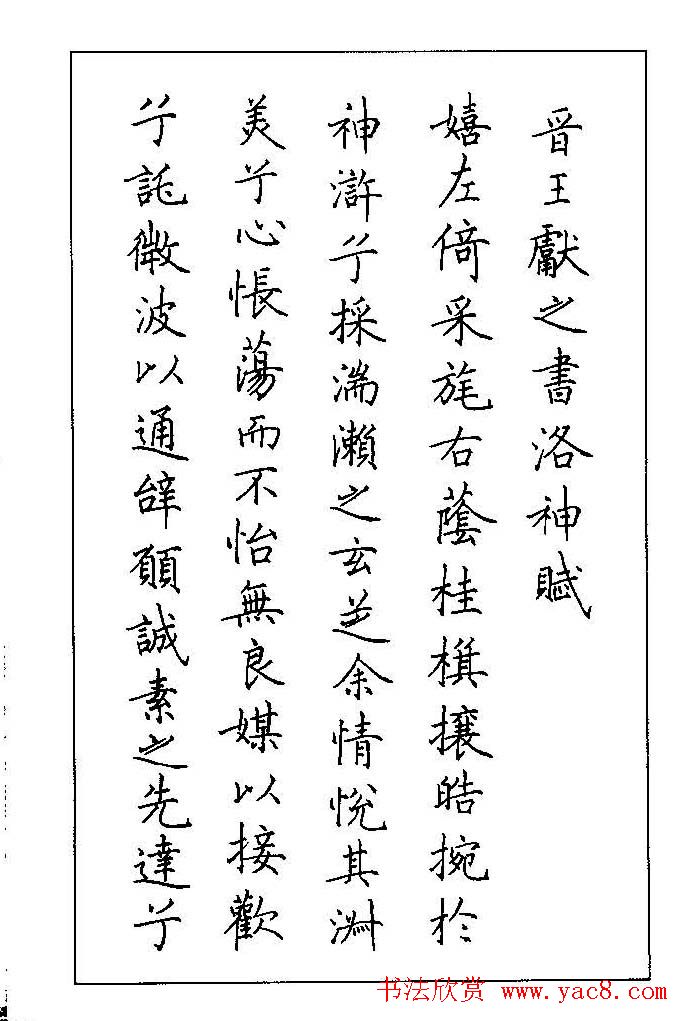 晉王獻之書洛神賦
嬉左倚采旄右蔭桂旗攘皓捥於
神滸兮採湍瀨之玄芝余情悅其淑
美兮心悵蕩而不怡無良媒以接歡
兮託微波以通辭願誠素之先達兮
书法欣赏 www.yac8.com